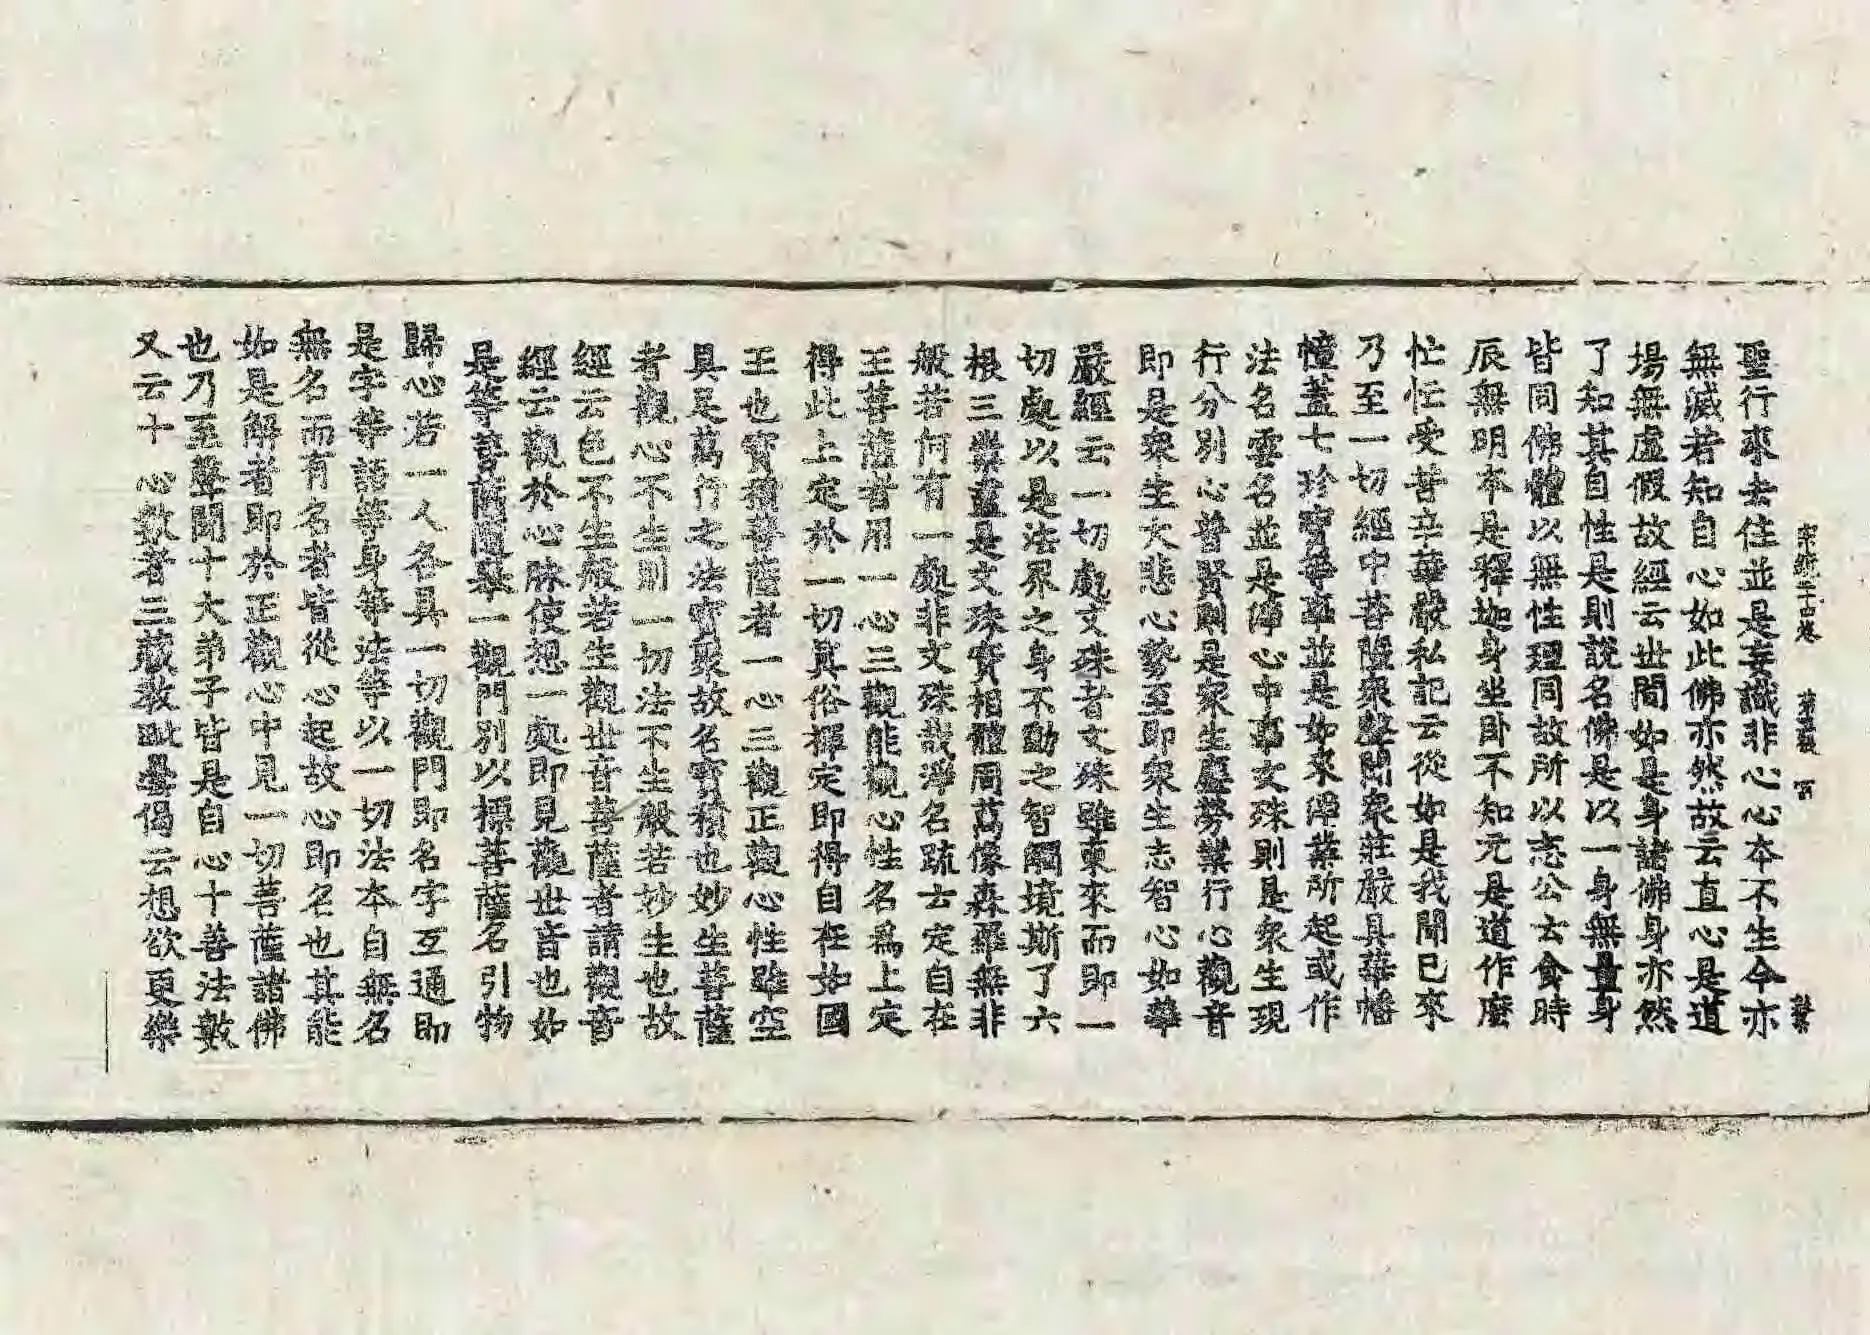 宗鏡二十四卷 第五張 百
聖行來去住並是妄識非心心本不生今亦
無滅若知自心如此佛亦然故云直心是道
場無虛假故經云世間如是身諸佛身亦然
了知其自性是則說名佛是以一身無量身
皆同佛體以無性理同故所以志公云食時
辰無明本是釋迦身坐臥不知元是道作麼
忙忙受苦辛華嚴私記云從如是我聞已來
乃至一切經中菩薩衆聲聞衆莊嚴具華幡
憧蓋七珍寶華藥並是如來淨業所起或作
法名雲名並是渾心中事文殊則是衆生現
行分別心普賢則是衆生塵勞業行心觀音
即是衆生大悲心勢至即衆生志智心如華
嚴經云一切處文殊者文殊雖東來而即一
切處以是法界之身不動之智觸境斯了六
根三業盡是文殊實相體同萬像森羅無非
般若何有一處非文殊哉淨名疏云定自在
王菩薩者用一心三觀能觀心性名爲上定
得此上定於一切真俗禪定即得自在如國
王也寶積菩薩者一心三觀正觀心性雖空
具足萬行之法寶聚故名寶積也妙生菩薩
者觀心不生則一切法不生般若妙生也故
經云色不生般若生觀世音菩薩者請觀音
經云觀於心脉使想一處即見觀世音也如
是等菩薩隨舉一觀門別以標菩薩名引物
歸心若一人各具一切觀門即名字互通即
是字等語等身等法等以一切法本自無名
無名而有名者皆從心起故心即名也其能
如是解者即於正觀心中見一切菩薩諸佛
也乃至聲聞十大弟子皆是自心十善法數
又云十心數者三藏教毗曇偈云想欲更樂